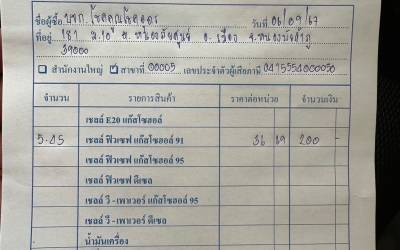 ชื่อผู้ซื้อ บจก. โชคคูณโชคอุดร วันที่ 06/09/67
ที่อยู่ 181 ม.10 ต. หนองบัว อ. เมือง จ. หนองบัวลำภู
39000
สำนักงานใหญ่ ☑ สาขาที่ 00005 เลขประจำตัวผู้เสียภาษี
จำนวน รายการสินค้า ราคาต่อหน่วย จำนวนเงิน
เชลล์ E20 แก๊สโซฮอล์
5.45 เชลล์ ฟิวเซฟ แก๊สโซฮอล์ 91 36 69 200 -
เชลล์ ฟิวเซฟ แก๊สโซฮอล์ 95
เชลล์ ฟิวเซฟ ดีเซล
เชลล์ วี - เพาเวอร์ แก๊สโซฮอล์ 95
เชลล์ วี - เพาเวอร์ ดีเซล
น้ำมันเครื่อง